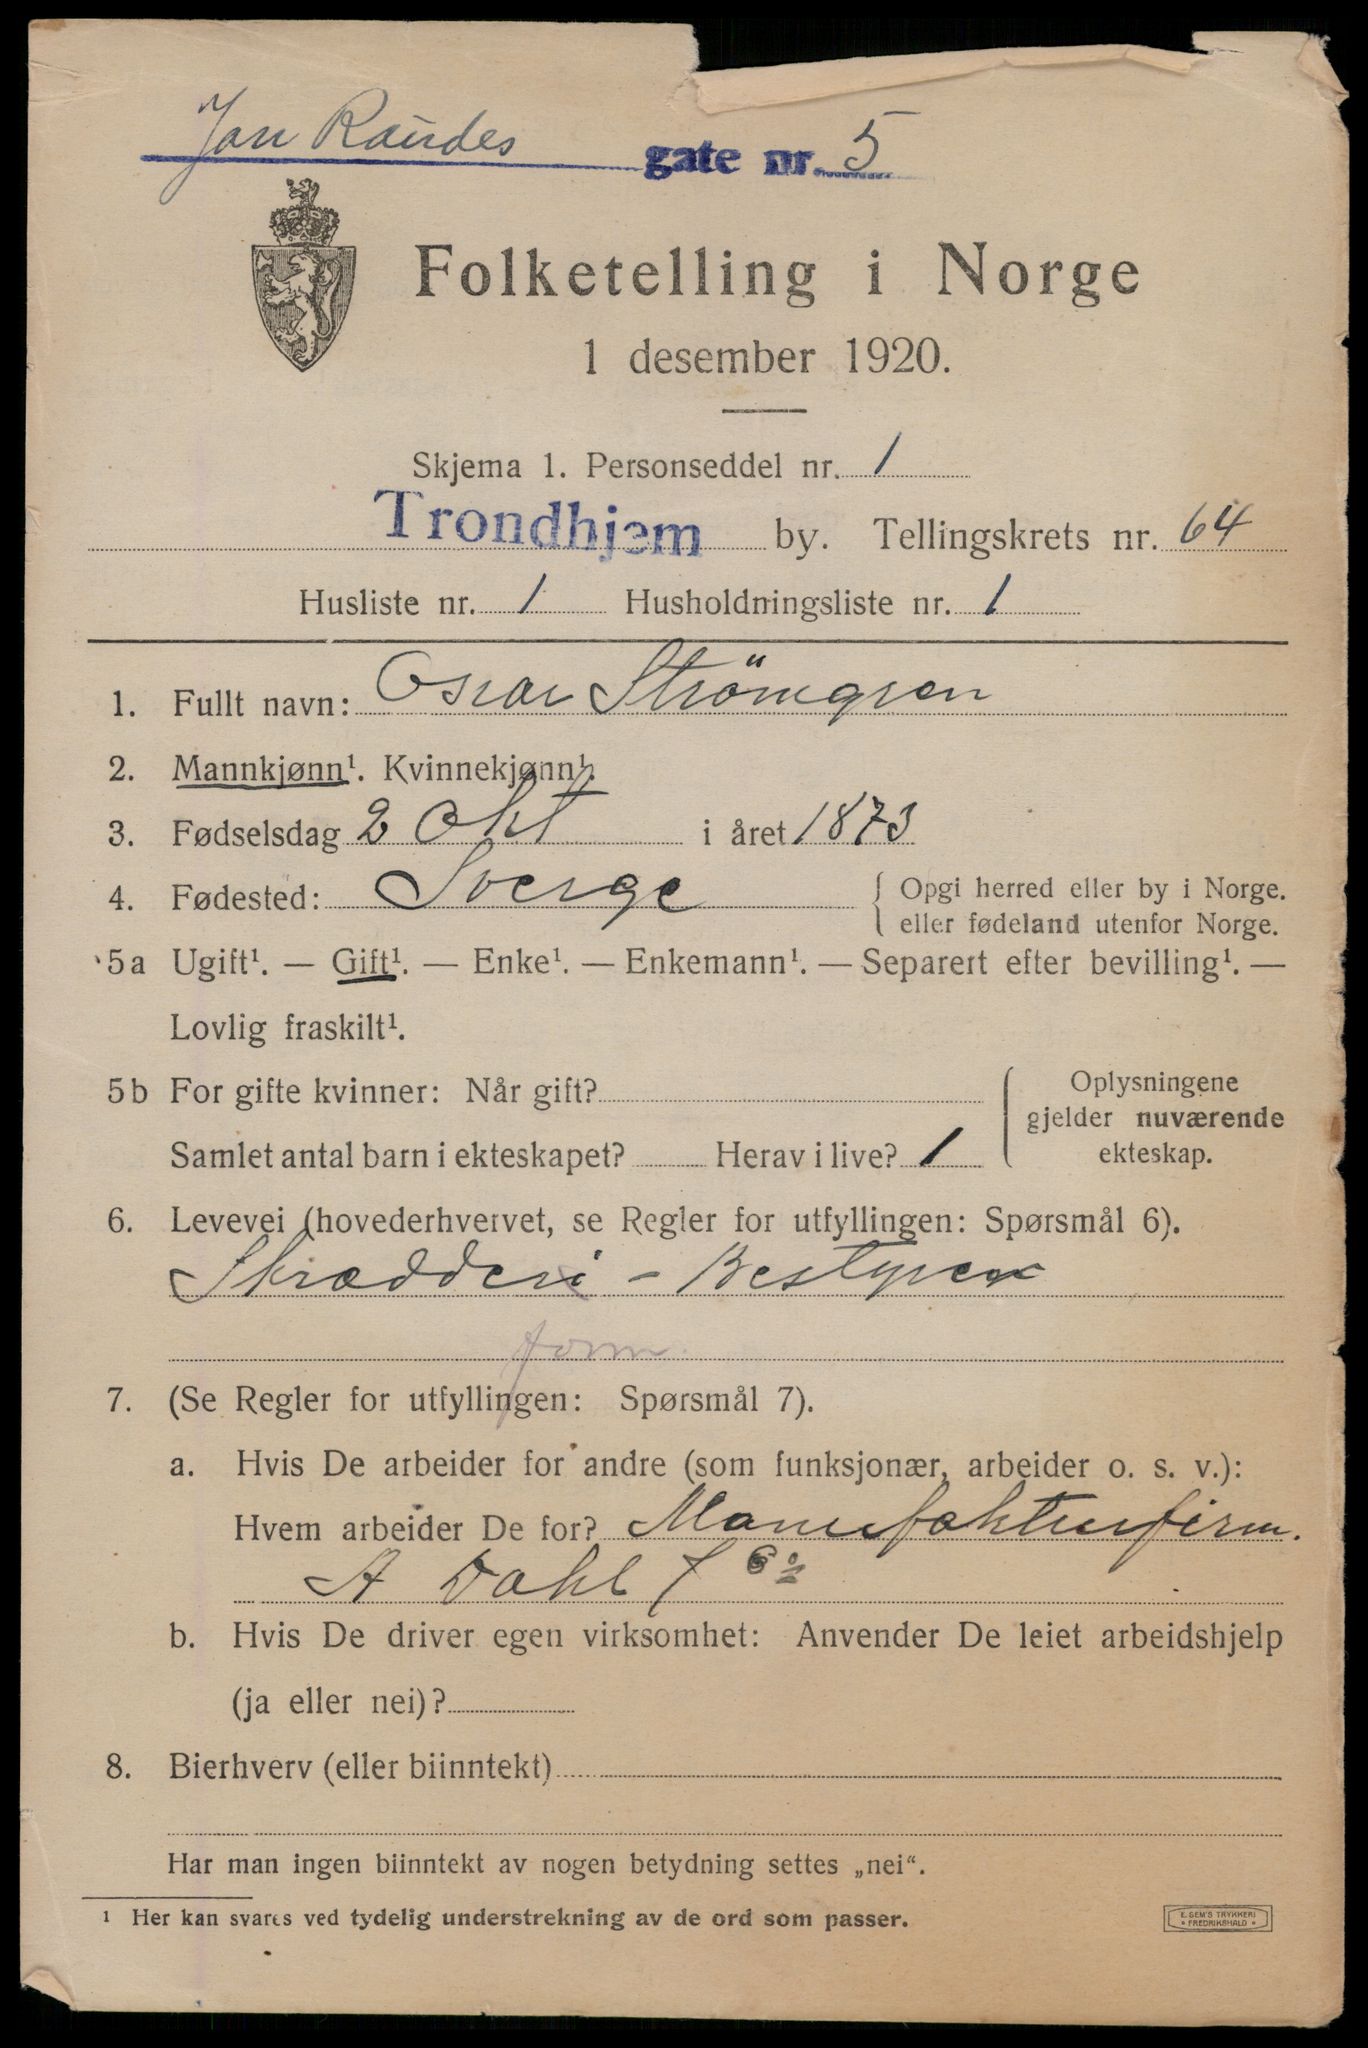 Jan Raudes gate nr. 5
Folketelling i Norge
1 desember 1920.
Skjema 1. Personseddel nr. 1
Trondhjem by. Tellingskrets nr. 64
Husliste nr. 1 Husholdningsliste nr. 1
1. Fullt navn: Oscar Strömgren
2. Mannkjønn¹. Kvinnekjønn¹.
3. Fødselsdag 2 Okt i året 1873
4. Fødested: Sverge { Opgi herred eller by i Norge.
eller fødeland utenfor Norge.
5a Ugift¹. — Gift¹. — Enke¹. — Enkemann¹. — Separert efter bevilling¹. —
Lovlig fraskilt¹.
5b For gifte kvinner: Når gift?
Samlet antal barn i ekteskapet? Herav i live? 1
Oplysningene
gjelder nuværende
ekteskap.
6. Levevei (hovederhvervet, se Regler for utfyllingen: Spørsmål 6).
Skrædderi - Bestyrer
form.
7. (Se Regler for utfyllingen: Spørsmål 7).
a. Hvis De arbeider for andre (som funksjonær, arbeider o. s. v.):
Hvem arbeider De for? Manufakturfirm.
A Dahl
b. Hvis De driver egen virksomhet: Anvender De leiet arbeidshjelp
(ja eller nei)?
8. Bierhverv (eller biinntekt)
Har man ingen biinntekt av nogen betydning settes „nei“.
¹ Her kan svares ved tydelig understrekning av de ord som passer.
E. SEM'S TRYKKERI
• FREDRIKSHALD •